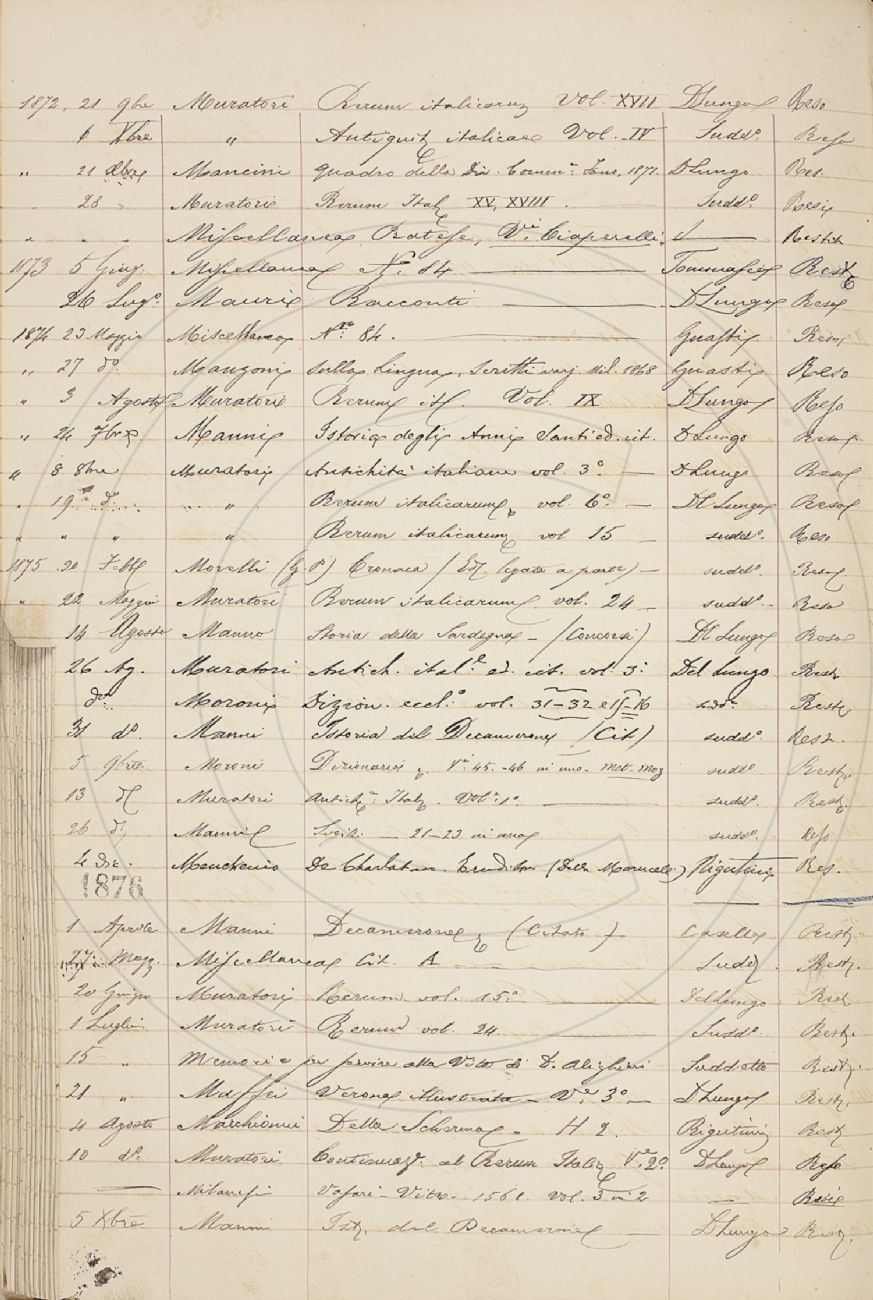 1872. 21 9bre Muratori Rerum italicarum Vol. XVII DLungo Reso
6 Xbre " Antiquit italicae Vol. IV Sudd.o Reso
" 21 Mancini Quadro della Comm. 1871. DLungo Res.
28 " Muratori Rerum Ital XV, XVIII. Sudd.o
" " " Miscellanea Pratese, Ciaperelli,
1873 5 Giug. Miscellanea N.o 14 Tommaseo Rest
26 Lug.o Racconti DLungo Reso
1874 23 Maggio Miscellanea N.ro 84. Guasti Reso
" 27 d.o Manzoni sulla Lingua, Scritti varj Mil. 1868 Guasti Reso
" 3 Agosto Muratori Rerum it. Vol. IX DLungo Reso
" 24 7bre Manni Istoria degli Anni Santi ed. cit. DLungo Reso
" 8 8bre Muratori Antichità italiane vol. 3.o — DLungo Reso
" 19 d. " " Rerum italicarum, vol. 6.o — Dl Lungo Reso
" " " " Rerum italicarum vol 15 — sudd.o Reso
1875 20 Febb Morelli (G P) Cronaca / Ed. legata a parte) — sudd.o Reso
" 22 Maggio Muratori Rerum italicarum vol. 24 — sudd.o - Reso
14 Agosto Manno Storia della Sardegna - / Concorsi) Dl Lungo Reso
26 Ag. Muratori Antich. ital.e ed. cit. vol. 3. Del Lungo Rest
d.o Moroni Dizion. eccl.o vol. 31-32 e 15-16 sdd.o Rest
31 d.o Manni Istoria del Decamerone /Cit) sudd.o Rest.
5 9bre Moroni Dizionario V.i 45.-46 in uno. sudd.o Rest.
13 d Muratori Antich. Ital. Vol. 1.o — sudd.o Rest.
26 d. Manni — 21-23 in uno sudd.o Reso
4 Dic. Menchenio De Charlatan. Erudit. (Della Marucell.) Rigutini Res.
1876
1 Aprile Manni Decamerone (Citato) Casella Rest.
27. Magg. Miscellanea Cit. A Sudd. Rest.
20 Giugno Muratori Rerum vol. 15.o — DelLungo Rest
1 Luglio Muratori Rerum vol. 24. — Sudd.o Rest.
15 " Memorie per servire alla Vita di D. Alighieri Suddetto Rest.
21 " Maffei Verona Illustrata - V.e 3.o — DLungo Rest.
4 Agosto Marchionni Della Scherma - H 2. Rigutini Rest.
10 d.o Muratori Continuaz. al Rerum Italic V.e 2.o DLungo Reso
— Milanesi Vasari - Vita - vol. 3 in 2 —
5 Xbre Manni Ist. del Decamerone — DLungo Rest.